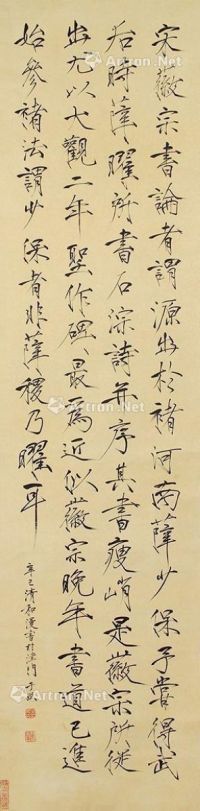 宋徽宗書論者謂源出於褚河南薛少保予嘗得武
后時薛曜所書石淙詩并序其書瘦峭是徽宗所從
出尤以大觀二年聖作碑最為近似徽宗晚年書道已進
始參褚法謂少保者非薛稷乃曜耳
辛巳清和漫書於津門
Artron.Net